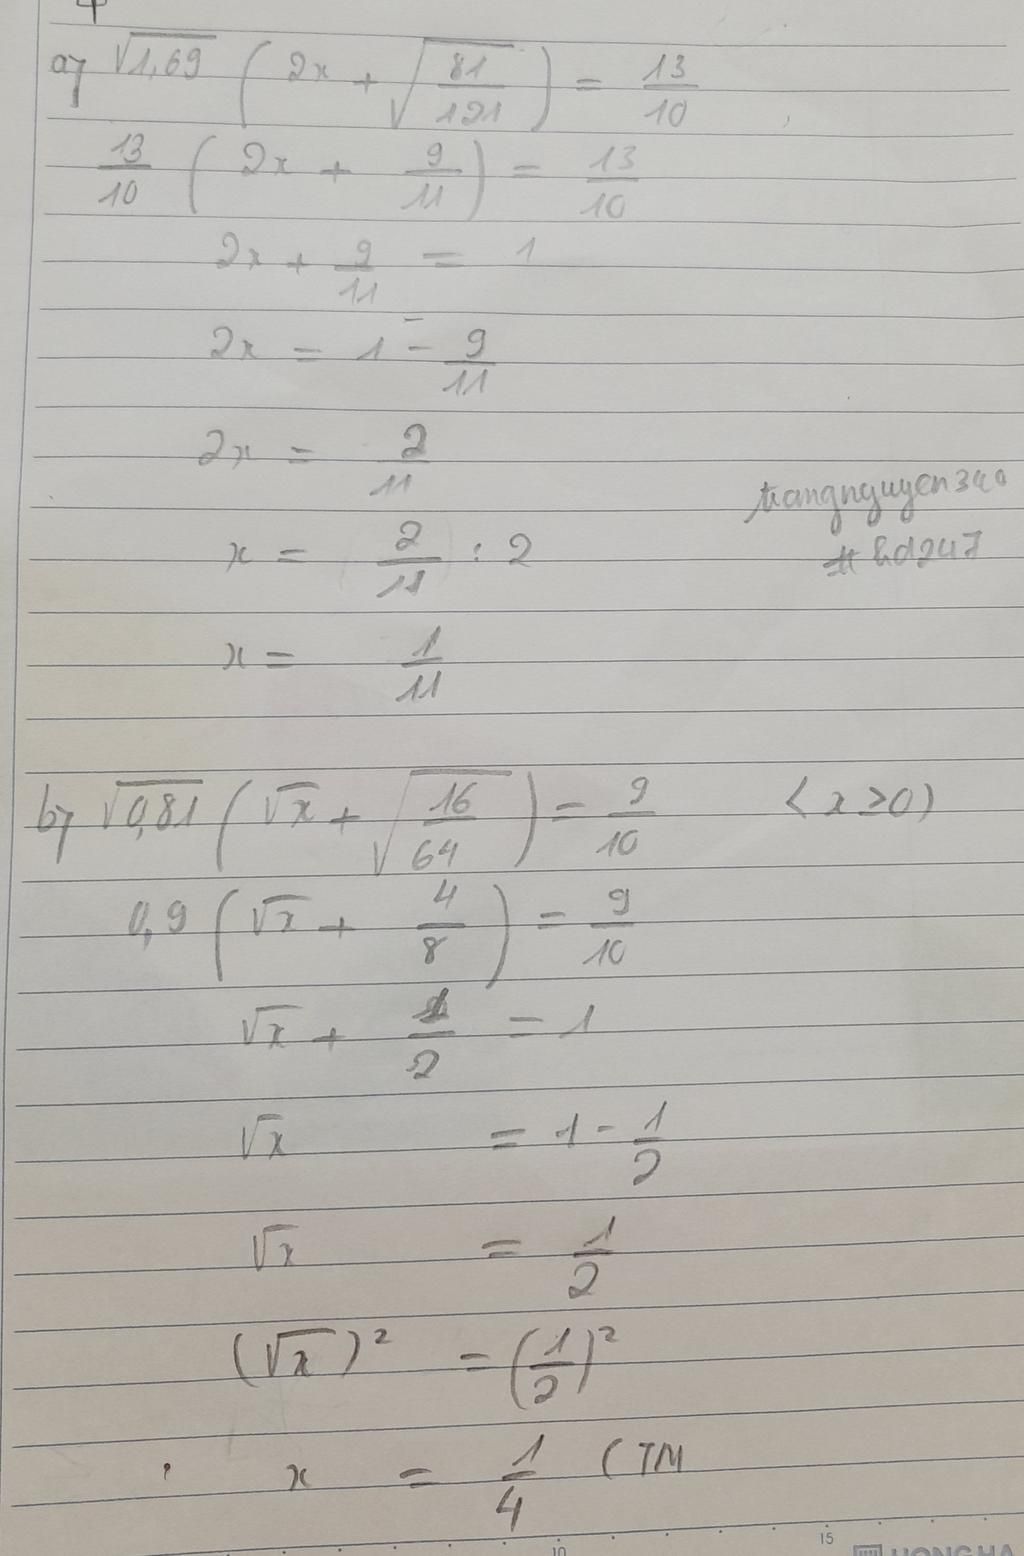 a) √1,69 (2x + √(81/121)) = 13/10
13/10 (2x + 9/11) = 13/10
2x + 9/11 = 1
2x = 1 - 9/11
2x = 2/11
trangnguyen340
x = 2/11 : 2
# hd247
x = 1/11
b) √0,81 (√x + √(16/64)) = 9/10 (x ≥ 0)
0,9 (√x + 4/8) = 9/10
√x + 1/2 = 1
√x = 1 - 1/2
√x = 1/2
(√x)² = (1/2)²
x = 1/4 (TM
10 15